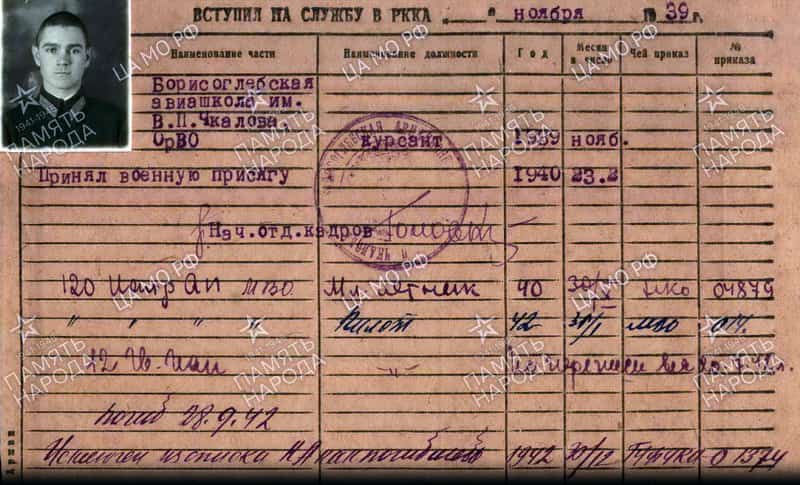 ВСТУПИЛ НА СЛУЖБУ В РККА „ " ноября 1939 г.
Наименование части Наименование должности Год Месяц и число Чей приказ № приказа
Борисоглебская
авиашкола им.
В.П.Чкалова.
ОрВО курсант 1939 нояб.
Принял военную присягу 1940 23.2
Нач.отд.кадров
120 Истр АП МВО Мл. летчик 40 30/X НКО 04879
" " " " Пилот 42 30/I МВО 014.
42 Гв. Иап " 42 г.
погиб 28.9.42
Исключен из списка КА как погибший 1942 30/12 ГУФУКА 01374
Архив
ЦАМО.РФ
1941-1945
ПАМЯТЬ
НАРОДА